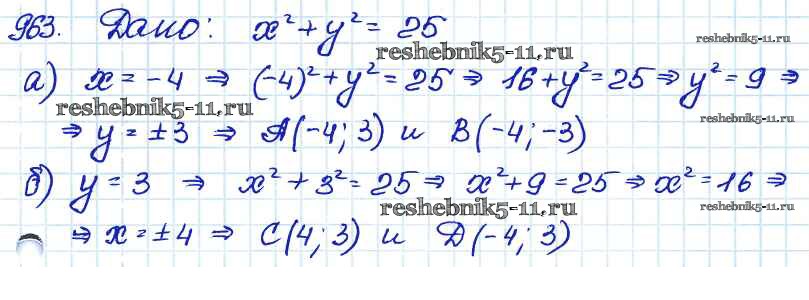 963. Дано: x² + y² = 25
reshebnik5-11.ru
reshebnik5-11.ru
а) x = -4 ⇒ (-4)² + y² = 25 ⇒ 16 + y² = 25 ⇒ y² = 9 ⇒
reshebnik5-11.ru
reshebnik5-11.ru
⇒ y = ±3 ⇒ A(-4; 3) и B(-4; -3)
б) y = 3 ⇒ x² + 3² = 25 ⇒ x² + 9 = 25 ⇒ x² = 16 ⇒
reshebnik5-11.ru
reshebnik5-11.ru
⇒ x = ±4 ⇒ C(4; 3) и D(-4; 3)